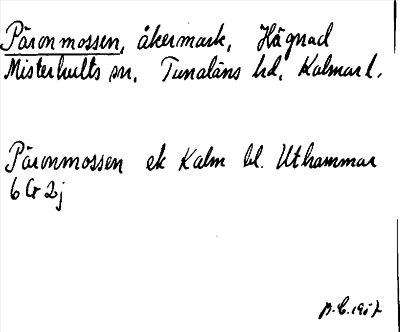 Päronmossen, åkermark, Hägnad
Misterhults sn, Tunaläns hd, Kalmar l.
Päronmossen ek Kalm bl. Uthammar
6 G 2j